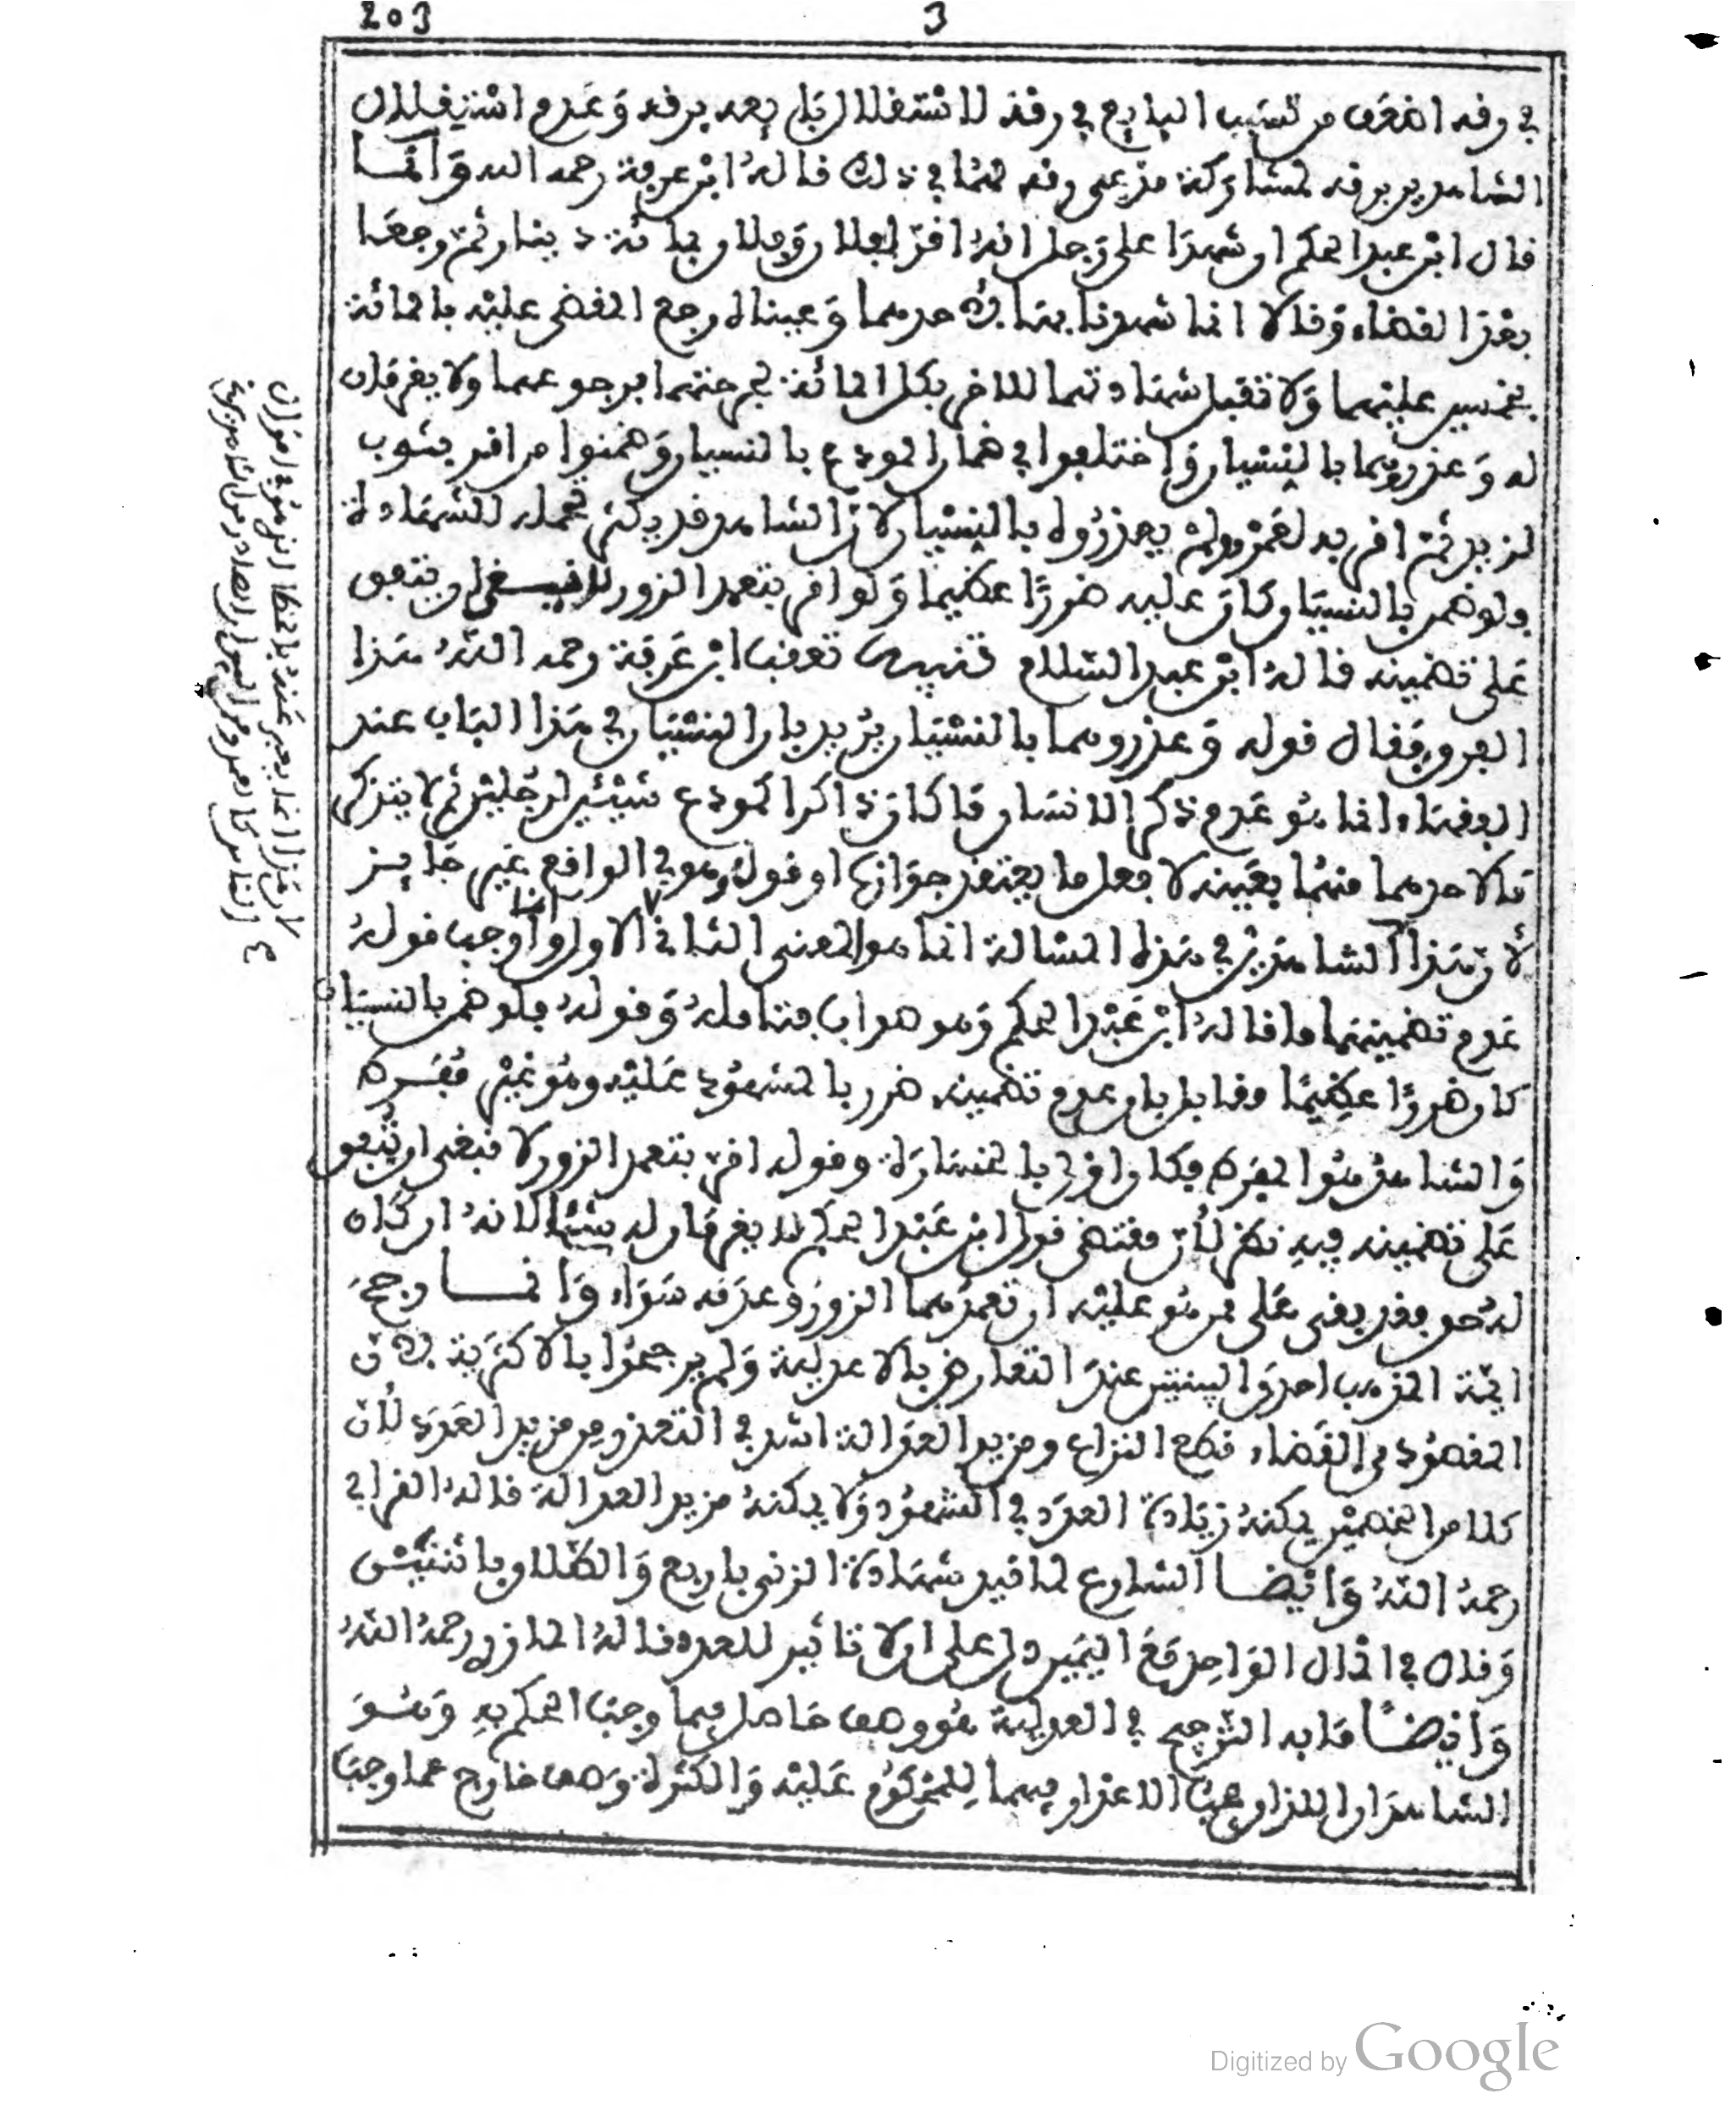 203
3
في رقه اضعف من تسبب البايع في رقه لاستقلال البايع برقه وعدم استقلال
الشاهدين برقه لمشاركة مدعى رقه لهما في ذلك قاله ابن عرفة رحمه الله وانما
قال ابن عبد الحكم ان شهدا على رجل انه اقر لفلان وفلان بمائة دينار ثم رجعا
بعد القضاء وقالا انما شهدنا بها لاحدهما وعيناه رجع المقضى عليه بالمائة
بخمسين عليهما ولا تقبل شهادتهما للاخر بكل المائة لجرحتهما برجوعهما ولا يغرمان
له وعذروهما بالنسيان واختلفوا في ضمان المودع بالنسيان وضمنوا من اقر بثوب
لزيد ثم اقر به لعمرو ولم يعذروه بالنسيان لان الشاهد قد يكثر تحمله للشهادة
ولو ضمن بالنسيان كان عليه ضررا عظيما ولو اقر بتعمد الزور لانبغى ان يتفق
على تضمينه قاله ابن عبد السلام تنبيه تعقب ابن عرفة رحمه الله هذا
الفرق فقال قوله وعذروهما بالنسيان يريد بان النسيان في هذا الباب عند
الفقهاء انما هو عدم ذكر الانسان ما كان ذاكرا كمودع شيئين لرجلين ثم لا يتذكر
مالاحدهما منهما بعينه لا فعل ما يعتقد جوازه او قوله وهو في الواقع غير جايز
لان هذا الشاهدين في هذه المسالة انما هو المعنى الثاني لا الاول وانما اوجب قوله
عدم تضمينهما ما قاله ابن عبد الحكم وهو صواب فتامله وقوله فلو ضمن بالنسيان
كان ضررا عظيما مقابل بان عدم تضمينه ضرر بالمشهود عليه وهو غير مفرط
والشاهد هو المفرط فكان اولى بالخسارة وقوله اقر بتعمد الزور لانبغى ان يتفق
على تضمينه فيه نظر لان مقتضى قول ابن عبد الحكم لا يغرمان له شيئا لانه ان كان
له حق فقد بقى على من هو عليه ان تعمدهما الزور وعدمه سواء وانما رجح
ايمة المذهب احدى البينتين عند التعارض بالاعدلية ولم يرجحوا بالاكثرية لان
المقصود من القضاء قطع النزاع ومزيد العدالة اشد في التعذر من مزيد العدد لان
كلا من الخصمين يمكنه زيادة العدد في الشهود ولا يمكنه مزيد العدالة قاله القرافي
رحمه الله وايضا الشارع لما قيد شهادة الزنى باربع والطلاق باثنين
وقال في المال الواحد مع اليمين دل على ان لا تاثير للعدد قاله المازري رحمه الله
وايضا ما به الترجيح في العدلية هو وصف حاصل فيما وجب الحكم به وهو
الشاهدان اللذان وجب الاعذار فيهما للمحكوم عليه والكثرة وصف خارج عما وجب